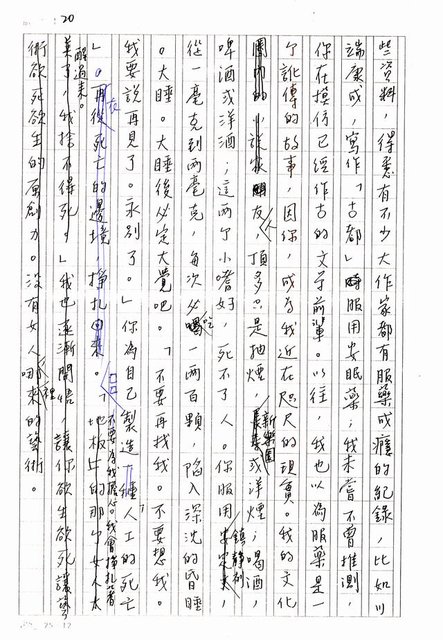 20
些資料，得悉有不少大作家都有服藥成癮的紀錄，比如川
端康成，寫作「古都」時服用安眠藥；我未嘗不曾推測，
你在摸仿已經作古的文字前輩。以往，我也以為服藥是一
个訛傳的故事，因你，成為我近在咫尺的現實。我的文化
圈內的小說家朋友，頂多只是抽煙，新樂園或洋煙；喝酒，
啤酒或洋酒；這兩个小嗜好，死不了人。你服用鎮靜劑，
從一毫克到兩毫克，每次必吃一兩百顆，陷入深沈的昏睡
。大睡。大睡後必定大覺吧。「不要再找我。不要想我。
我要說再見了。永別了。」你為自己製造一種人工的死亡
」。再從死亡的邊境，掙扎回來。「不要為我擔心。我會掙扎著
醒過來。
地板上的那个女人太
美了，我捨不得死。」我也逐漸開悟，讓你欲生欲死，讓藝
術欲死欲生的原創力。沒有女人，哪來的藝術。